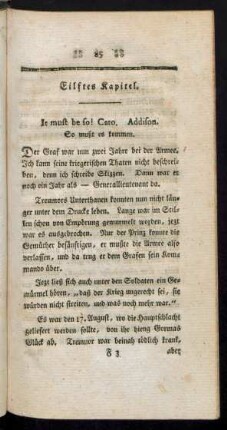 85
Eilftes Kapitel.
It must be so! Cato. Addison.
So mußt es kommen.
Der Graf war nun zwei Jahre bei der Armee.
Ich kann seine kriegerischen Thaten nicht beschrei-
ben, denn ich schreibe Skizzen. Dann war er
noch ein Jahr als — Generallieutenant da.
Treumors Unterthanen konnten nun nicht län-
ger unter dem Drucke leben. Lange war im Stil-
len schon von Empörung gemurmelt worden, jetzt
war es ausgebrochen. Nur der Prinz konnte die
Gemüther besänftigen, er mußte die Armee also
verlassen, und da trug er dem Grafen sein Kom-
mando über.
Jetzt ließ sich auch unter den Soldaten ein Ge-
murmel hören, „daß der Krieg ungerecht sei, sie
würden nicht streiten, und was noch mehr war."
Es war den 17. August, wo die Hauptschlacht
geliefert werden sollte, von ihr hieng Gemmas
Glück ab. Treumor war beinah tödlich krank,
F 3 aber